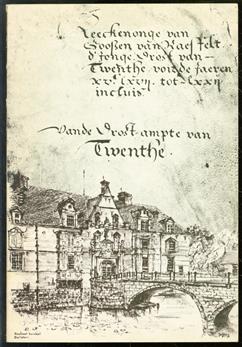 Reeckenonge van
Goossen van Raesfelt
d'Jonge Drost van
Twenthe vor de jaeren
XVc LXVII tot LXXII
incluis
Vande Drost ampte van
Twenthe